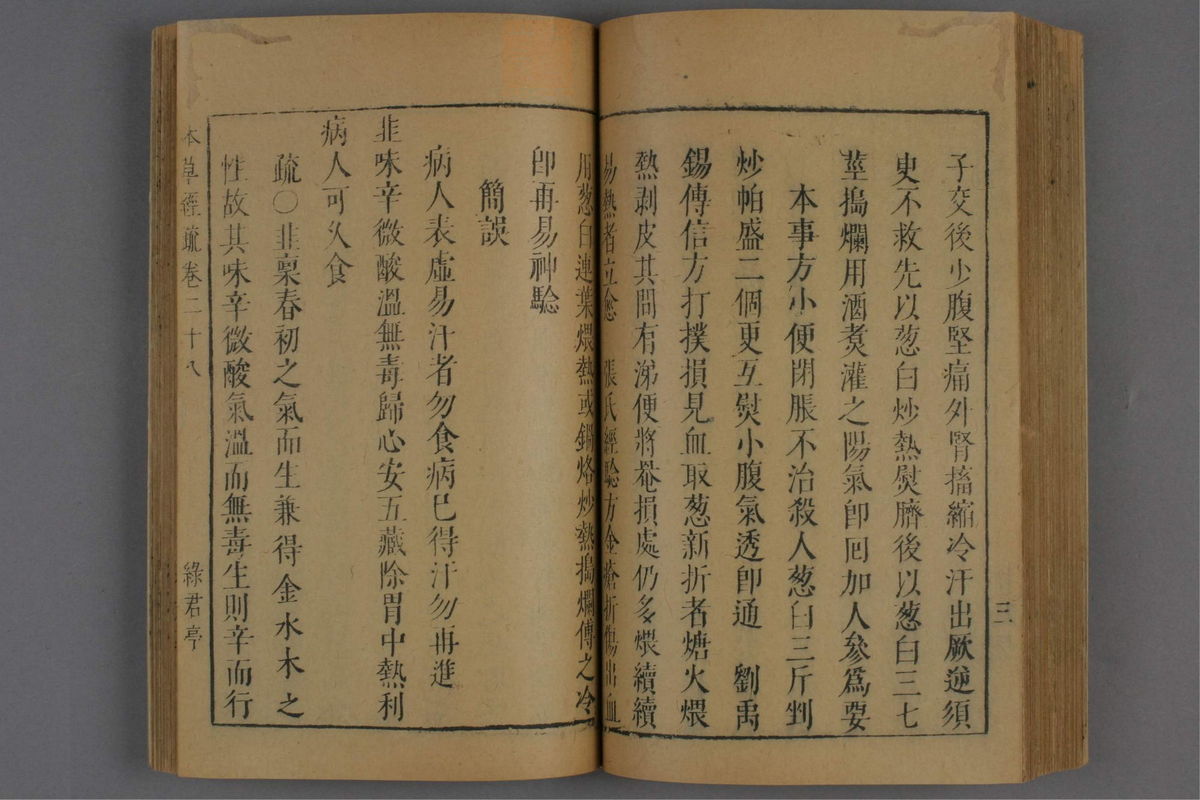 三
子交後少腹堅痛外腎搐縮冷汗出厥逆須
臾不救先以葱白炒熱熨臍後以葱白三七
莖搗爛用酒煑灌之陽氣卽囘加人參爲要
本事方小便閉脹不治殺人葱白三斤剉
炒帕盛二個更互熨小腹氣透卽通　劉禹
錫傳信方打撲損見血取葱新折者煻火煨
熱剥皮其間有涕便將罨損處仍多煨續續
易熱者立愈　張氏經驗方金瘡折傷出血
用葱白連葉煨熱或鍋烙炒熱搗爛傅之冷
卽再易神驗
簡誤
病人表虛易汗者勿食病已得汗勿再進
韭味辛微酸溫無毒歸心安五藏除胃中熱利
病人可久食
疏〇韭稟春初之氣而生兼得金水木之
性故其味辛微酸氣溫而無毒生則辛而行
本草經疏卷二十八
綠君亭